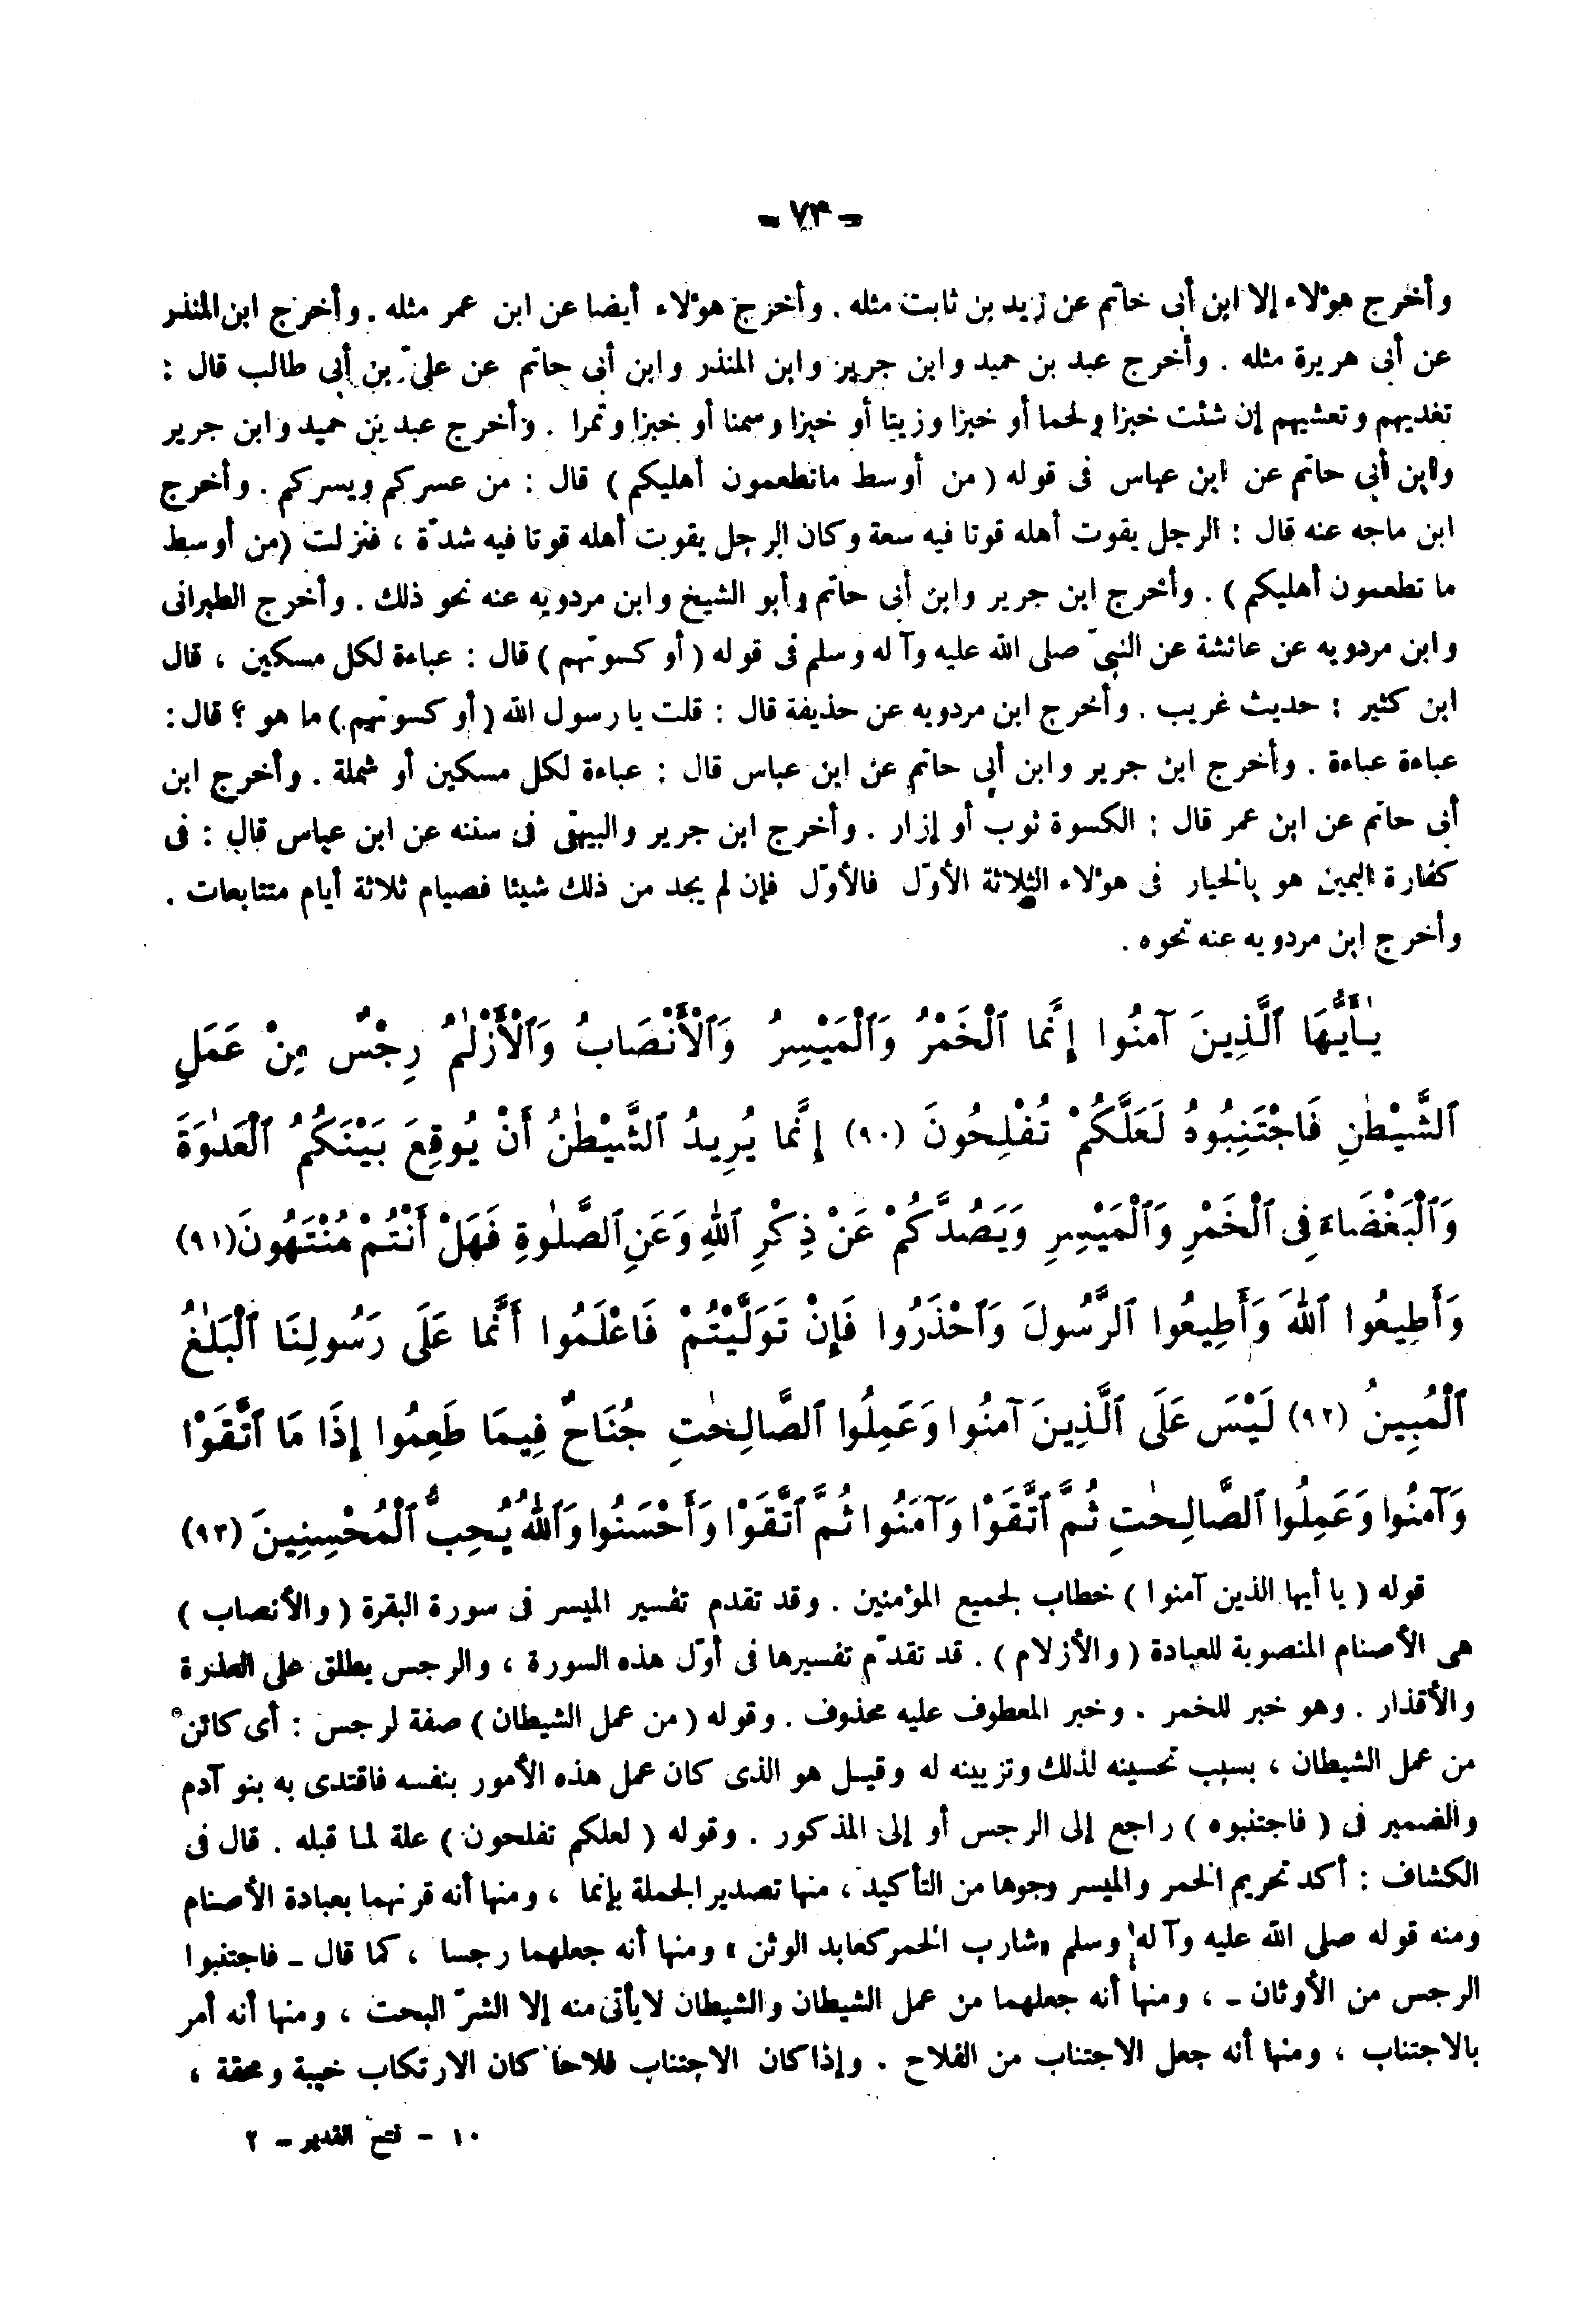 - ٧٣ -
وأخرج هؤلاء إلا ابن أبى حاتم عن زيد بن ثابت مثله . وأخرج هؤلاء أيضا عن ابن عمر مثله . وأخرج ابن المنذر
عن أبى هريرة مثله . وأخرج عبد بن حميد وابن جرير وابن المنذر وابن أبى حاتم عن علىّ بن أبى طالب قال :
تغديهم وتعشيهم إن شئت خبزا ولحما أو خبزا وزيتا أو خبزا وسمنا أو خبزا وتمرا . وأخرج عبد بن حميد وابن جرير
وابن أبى حاتم عن ابن عباس فى قوله ( من أوسط ماتطعمون أهليكم ) قال : من عسركم ويسركم . وأخرج
ابن ماجه عنه قال : الرجل يقوت أهله قوتا فيه سعة وكان الرجل يقوت أهله قوتا فيه شدّة ، فنزلت (من أوسط
ما تطعمون أهليكم ) . وأخرج ابن جرير وابن أبى حاتم وأبو الشيخ وابن مردويه عنه نحو ذلك . وأخرج الطبرانى
وابن مردويه عن عائشة عن النبىّ صلى الله عليه وآله وسلم فى قوله ( أو كسوتهم ) قال : عباءة لكل مسكين ، قال
ابن كثير : حديث غريب . وأخرج ابن مردويه عن حذيفة قال : قلت يا رسول الله ( أو كسوتهم ) ما هو ؟ قال :
عباءة عباءة . وأخرج ابن جرير وابن أبى حاتم عن ابن عباس قال : عباءة لكل مسكين أو شملة . وأخرج ابن
أبى حاتم عن ابن عمر قال : الكسوة ثوب أو إزار . وأخرج ابن جرير والبيهقى فى سننه عن ابن عباس قال : فى
كفارة اليمين هو بالخيار فى هؤلاء الثلاثة الأوّل فالأوّل فإن لم يجد من ذلك شيئا فصيام ثلاثة أيام متتابعات .
وأخرج ابن مردويه عنه نحوه .
يٰأَيُّهَا ٱلَّذِينَ آمَنُوا إِنَّمَا ٱلْخَمْرُ وَٱلْمَيْسِرُ وَٱلْأَنْصَابُ وَٱلْأَزْلٰمُ رِجْسٌ مِنْ عَمَلِ
ٱلشَّيْطٰنِ فَاجْتَنِبُوهُ لَعَلَّكُمْ تُفْلِحُونَ (٩٠) إِنَّمَا يُرِيدُ ٱلشَّيْطٰنُ أَنْ يُوقِعَ بَيْنَكُمُ ٱلْعَدٰوَةَ
وَٱلْبَغْضَاءَ فِى ٱلْخَمْرِ وَٱلْمَيْسِرِ وَيَصُدَّكُمْ عَنْ ذِكْرِ ٱللهِ وَعَنِ ٱلصَّلٰوةِ فَهَلْ أَنْتُمْ مُنْتَهُونَ (٩١)
وَأَطِيعُوا ٱللهَ وَأَطِيعُوا ٱلرَّسُولَ وَٱحْذَرُوا فَإِنْ تَوَلَّيْتُمْ فَاعْلَمُوا أَنَّمَا عَلَى رَسُولِنَا ٱلْبَلٰغُ
ٱلْمُبِينُ (٩٢) لَيْسَ عَلَى ٱلَّذِينَ آمَنُوا وَعَمِلُوا ٱلصَّالِحٰتِ جُنَاحٌ فِيمَا طَعِمُوا إِذَا مَا ٱتَّقَوْا
وَآمَنُوا وَعَمِلُوا ٱلصَّالِحٰتِ ثُمَّ ٱتَّقَوْا وَآمَنُوا ثُمَّ ٱتَّقَوْا وَأَحْسَنُوا وَٱللهُ يُحِبُّ ٱلْمُحْسِنِينَ (٩٣)
قوله ( يا أيها الذين آمنوا ) خطاب لجميع المؤمنين . وقد تقدم تفسير الميسر فى سورة البقرة ( والأنصاب )
هى الأصنام المنصوبة للعبادة ( والأزلام ) . قد تقدّم تفسيرها فى أوّل هذه السورة ، والرجس يطلق على العذرة
والأقذار . وهو خبر للخمر . وخبر المعطوف عليه محذوف . وقوله ( من عمل الشيطان ) صفة لرجس : أى كائن
من عمل الشيطان ، بسبب تحسينه لذلك وتزيينه له وقيل هو الذى كان عمل هذه الأمور بنفسه فاقتدى به بنو آدم
والضمير فى ( فاجتنبوه ) راجع إلى الرجس أو إلى المذكور . وقوله ( لعلكم تفلحون ) علة لما قبله . قال فى
الكشاف : أكد تحريم الخمر والميسر وجوها من التأكيد ، منها تصدير الجملة بإنما ، ومنها أنه قرنهما بعبادة الأصنام
ومنه قوله صلى الله عليه وآله وسلم «شارب الخمر كعابد الوثن » ومنها أنه جعلهما رجسا ، كما قال - فاجتنبوا
الرجس من الأوثان - ، ومنها أنه جعلهما من عمل الشيطان والشيطان لايأتى منه إلا الشرّ البحت ، ومنها أنه أمر
بالاجتناب ، ومنها أنه جعل الاجتناب من الفلاح . وإذا كان الاجتناب فلاحا كان الارتكاب خيبة ومحقة ،
١٠ - فتح القدير - ٢